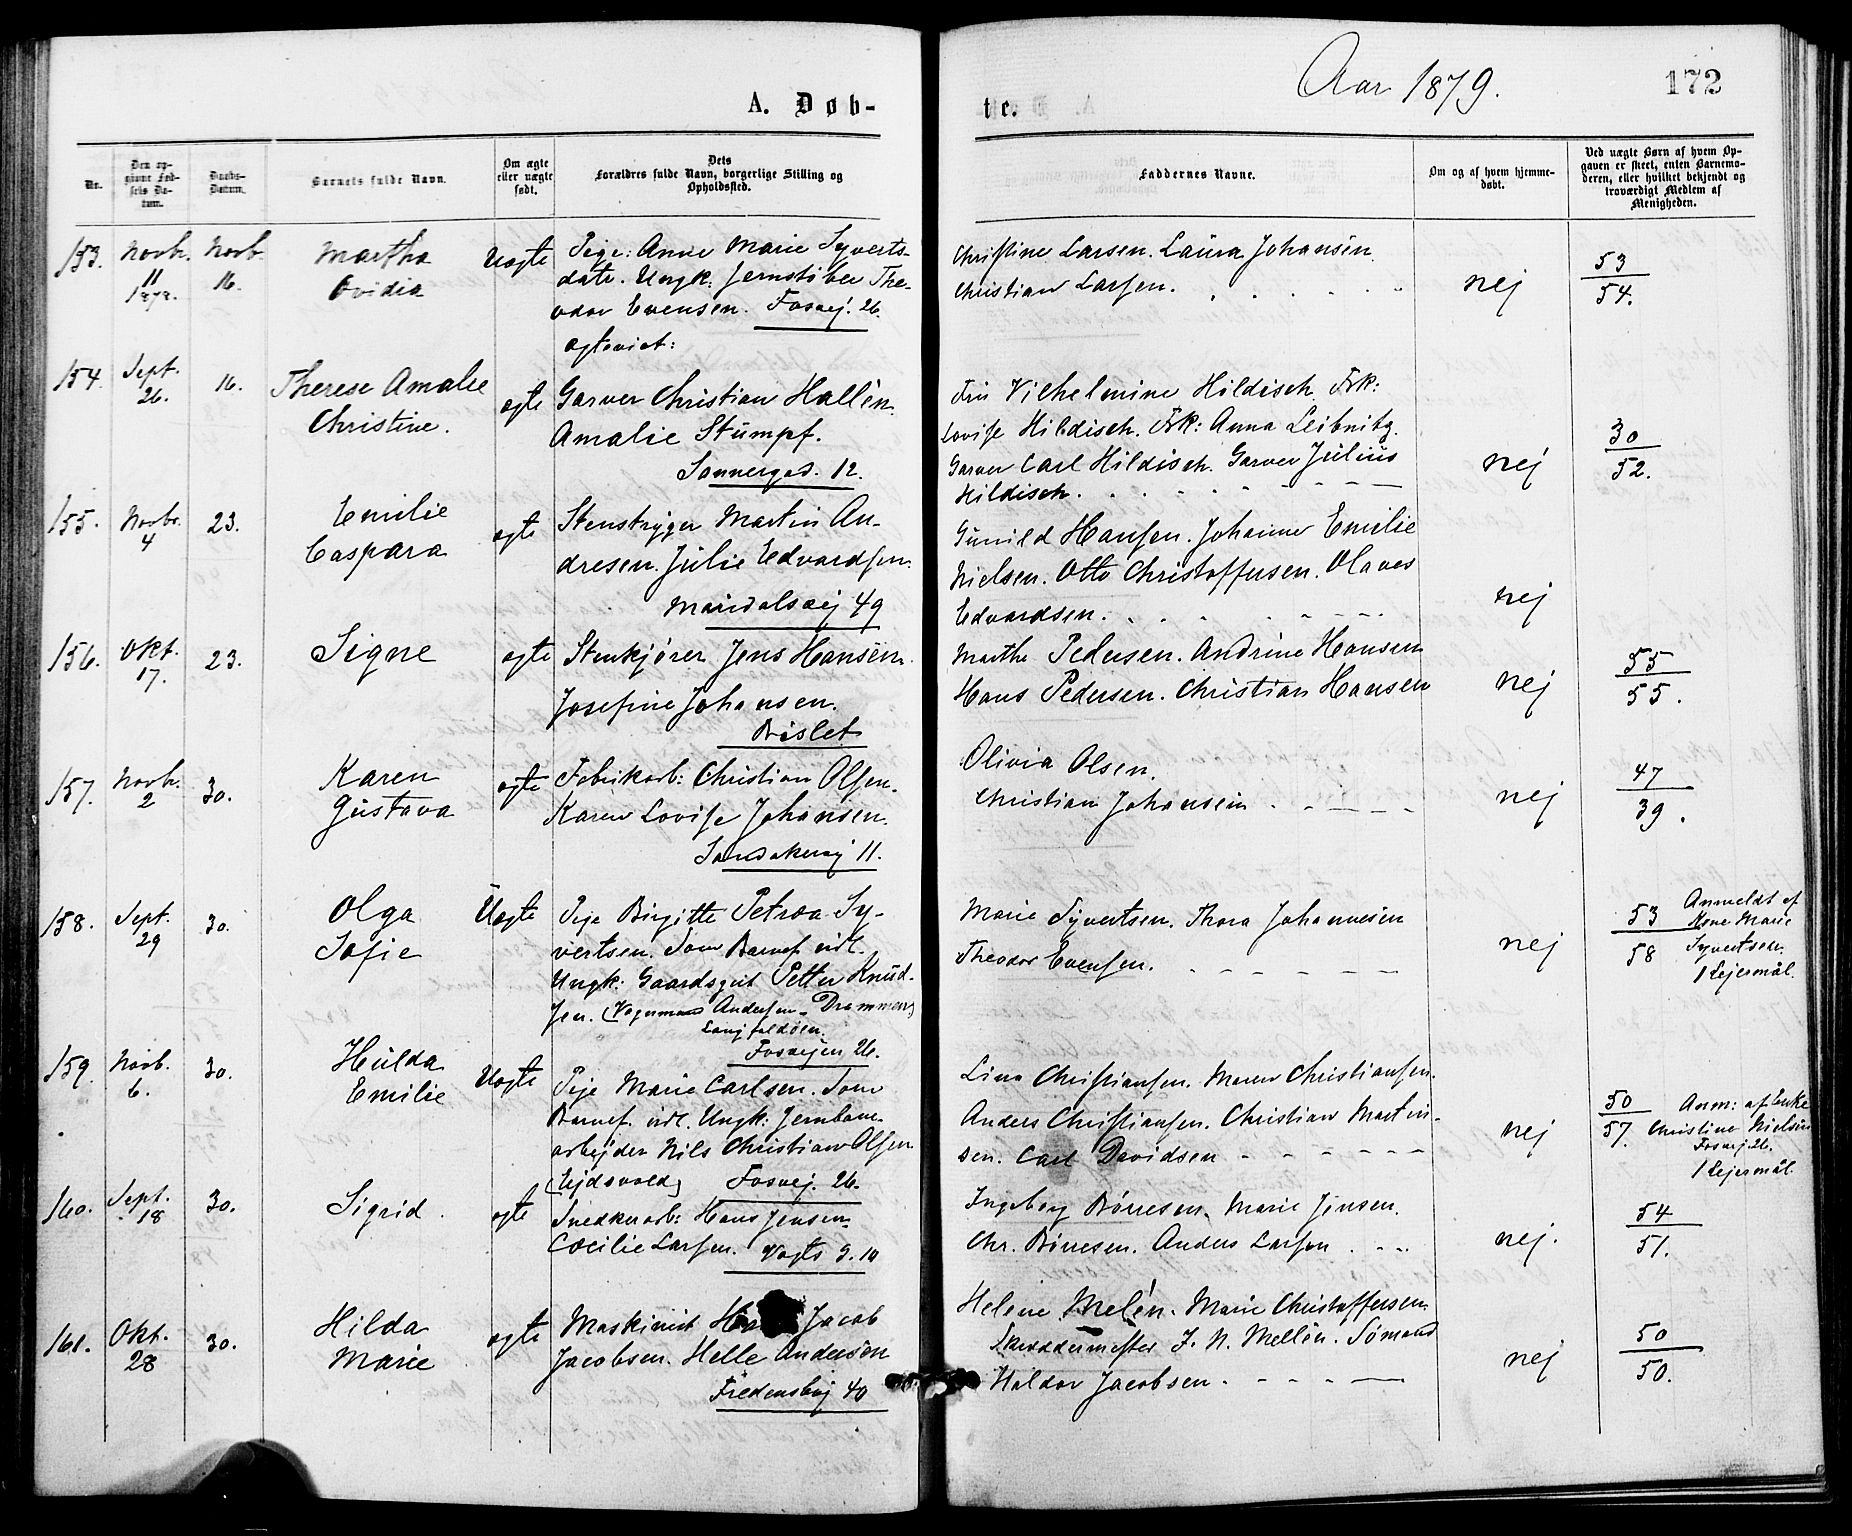 A. Døb-
te.
Aar 1879.
172
Nr.
Den op-
givne Fød-
sels Da-
tum.
Daabs-
Datum.
Barnets fulde Navn.
Om ægte
eller uægte
født.
Dets
Forældres fulde Navn, borgerlige Stilling og
Opholdssted.
Faddernes Navne.
Om og af hvem hjemme-
døbt.
Ved uægte Børn af hvem Op-
gaven er skeet, enten Barnemo-
deren, eller hvilket bekjendt og
troværdigt Medlem af
Menigheden.
153. Novbr. 11 1878. Novb. 16. Martha Ovidia Uægte
Pige: Anne Marie Syverts-
datr. Ungk: Jernstøber The-
odor Evensen. Fosvej. 26.
ægteviet:
Christine Larsen. Laura Johansen
Christian Larsen.
nej
53
54.
154. Sept. 26. 16. Therese Amalie Christine. ægte
Garver Christian Hallén.
Amalie Stumpf.
Sannergad. 12.
Fru Vilhelmine Hildisch. Frk:
Lovise Hildisch. Frk: Anna Leibnitz.
Garver Carl Hildisch. Garver Julius
Hildisch.
nej
30
52.
155. Novbr. 4 23. Emilie Caspara ægte
Stenstryger Martin An-
dresen. Julie Edvardsen.
Maridalsvej 49
Gunild Hansen. Johanne Emilie
Nielsen. Otto Christoffersen. Olaves
Edvardsen.
nej
156. Okt. 17. 23. Signe ægte
Stenkjører Jens Hansen.
Josefine Johansen.
Bislet
Marthe Pedersen. Andrine Hansen
Hans Pedersen. Christian Hansen
nej
55
55.
157. Novbr. 2 30. Karen Gustava ægte
Fabrikarb: Christian Olsen.
Karen Lovise Johansen.
Sandakervej 11.
Olivia Olsen.
Christian Johansen
nej
47
39.
158. Sept. 29 30. Olga Sofie Uægte
Pige Birgitte Petrea Sy-
vertsen. Som Barnef. udl.
Ungk: Gaardsgut Petter Knud-
sen. (Vognmand Andersen. Drammen)
Fosvejen 26.
Marie Syvertsen. Thora Johannesen
Theodor Evensen.
nej
53
58
Anmeldt af
Kone Marie
Syvertsen.
1 Lejermål.
159. Novb. 6. 30. Hulda Emilie Uægte
Pige Marie Carlsen. Som
Barnef. udl. Ungk: Jernbane-
arbejder Nils Christian Olsen
(Ejdsvold) Fosvej. 26.
Lina Christiansen. Maren Christiansen.
Anders Christiansen. Christian Martin-
sen. Carl Davidsen
nej
50
57.
Anm: af Enke
Christine Nielsen
Fosvej 26.
1 Lejermål
160. Sept. 18 30. Sigrid. ægte
Snedkerarb: Hans Jensen.
Cæcilie Larsen. Vogts G. 10
Ingeborg Børresen. Marie Jensen.
Chr. Børresen. Anders Larsen
nej.
54
51.
161. Okt. 28 30. Hilda Marie ægte
Maskinist Jacob
Jacobsen. Helle Andersen
Fredensborg 40
Helene Melén. Marie Christoffersen
Skræddermester J. N. Mellén. Sømand
Haldor Jacobsen.
nej
50
50.